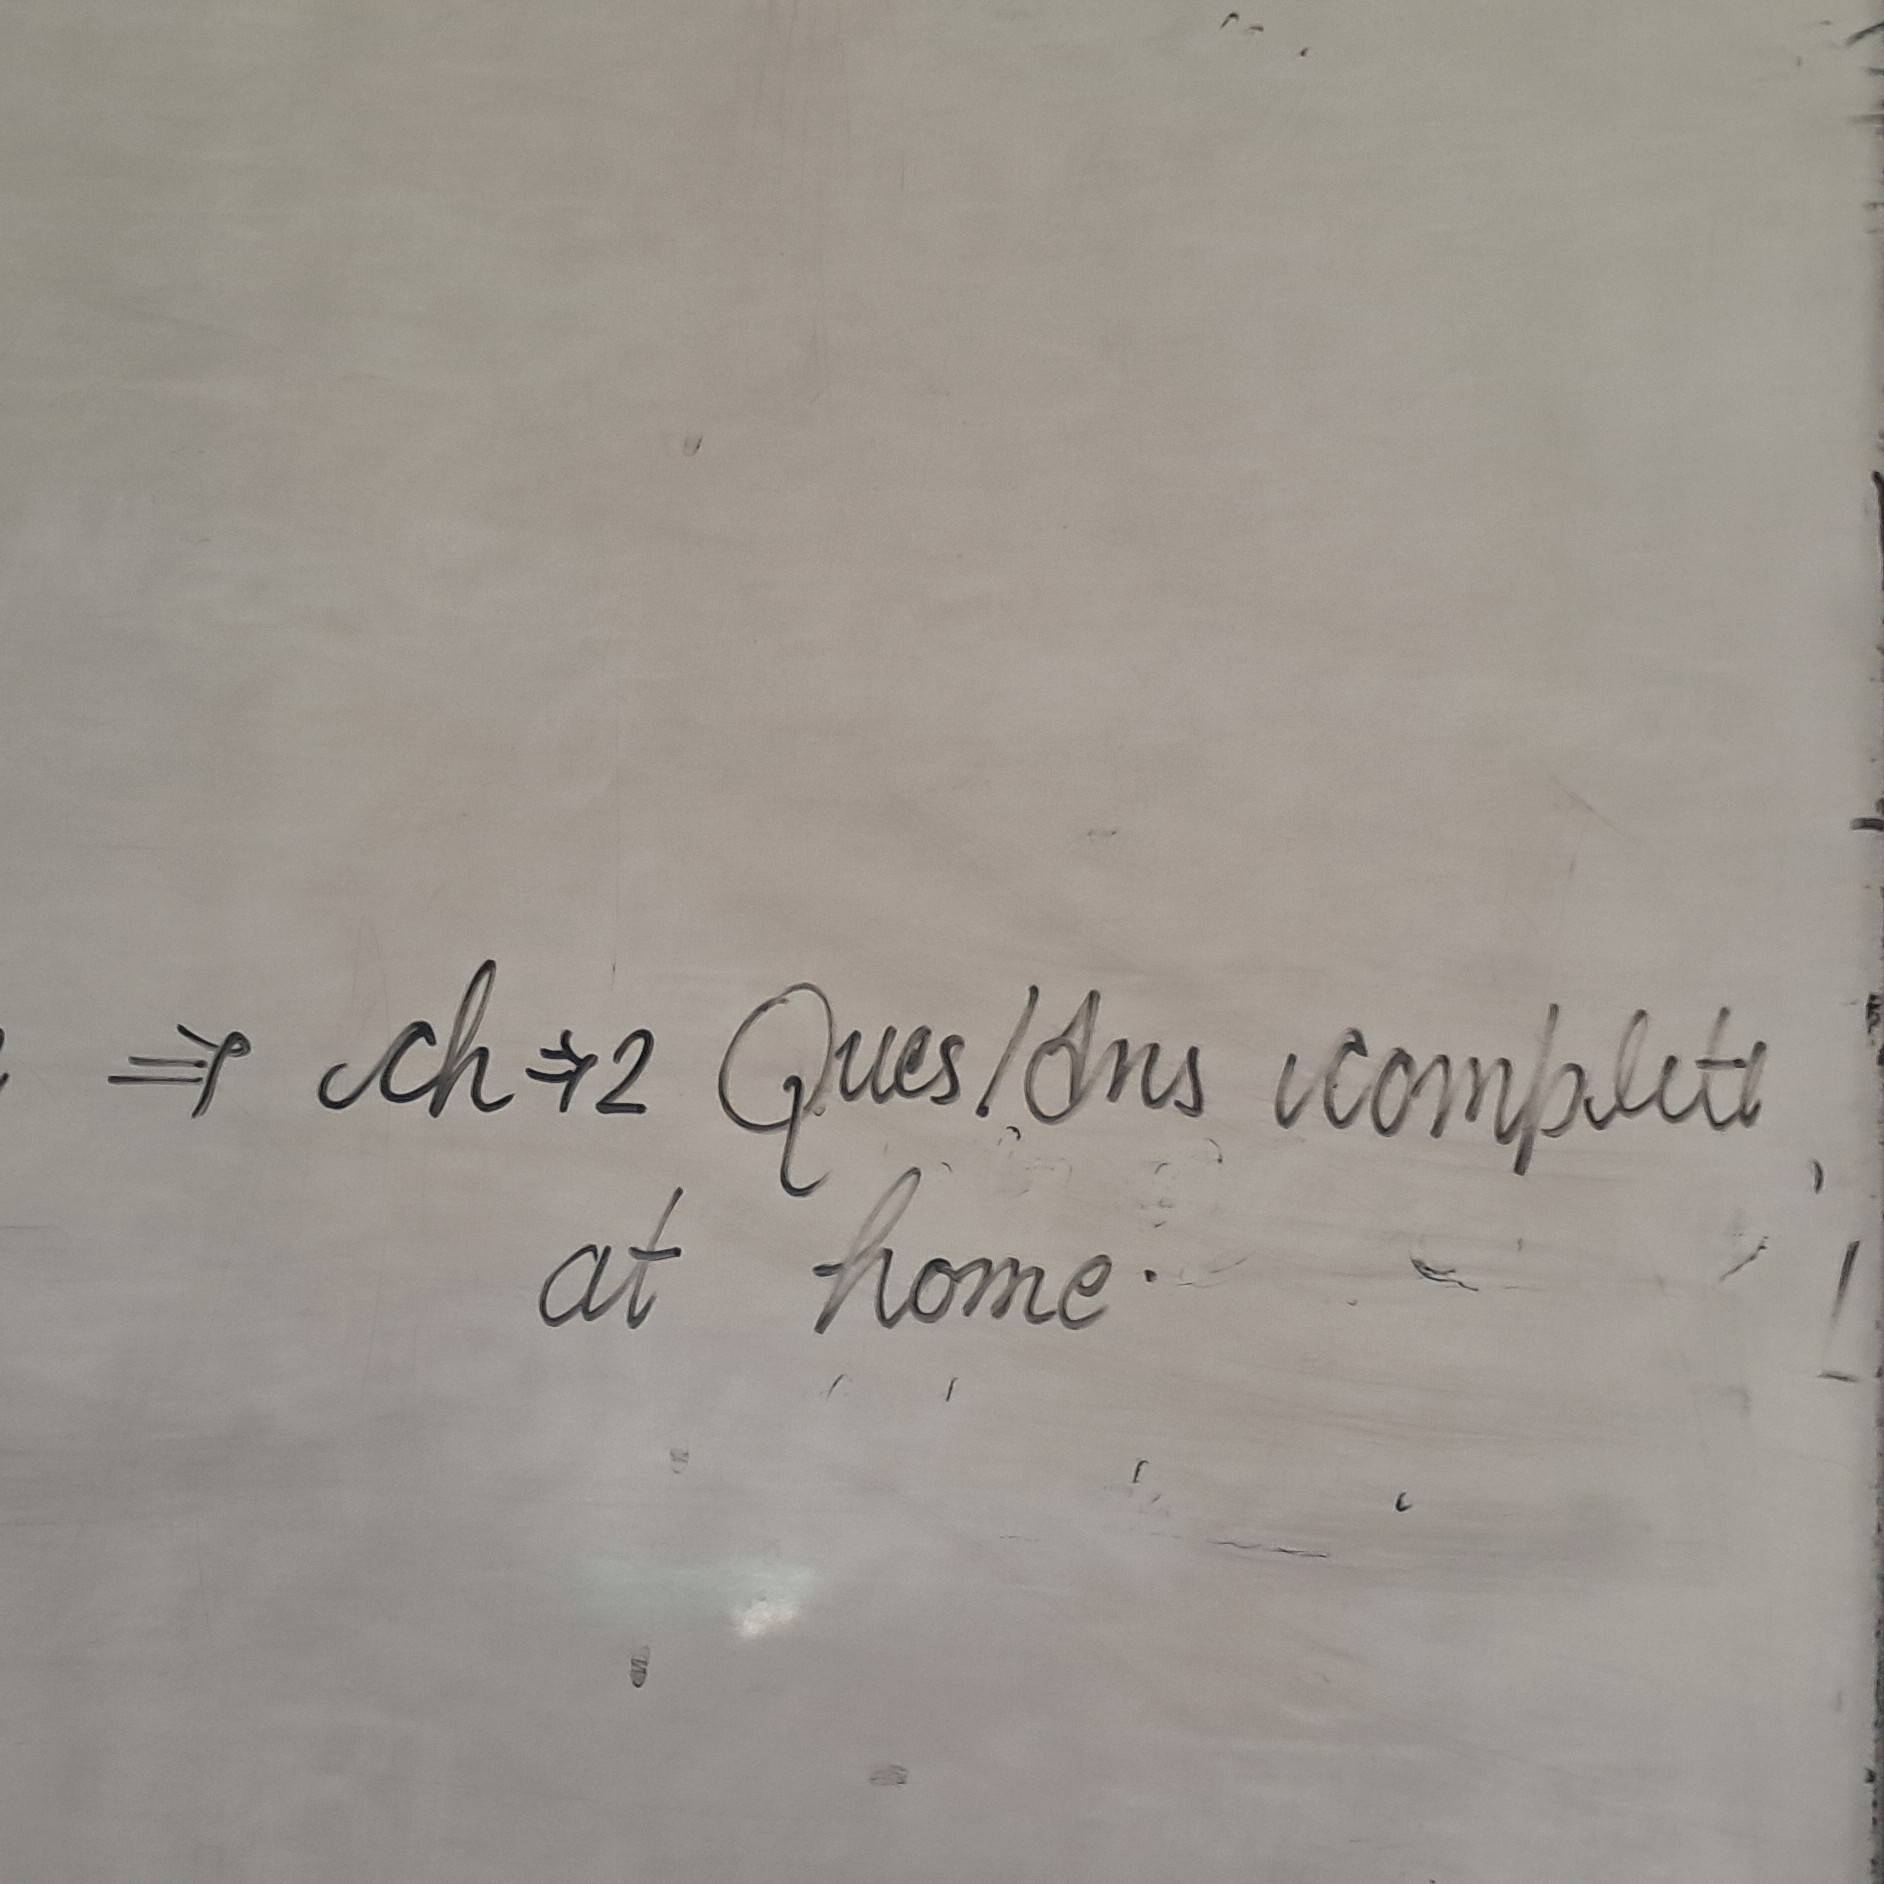 ⇒ ch⇒2 Ques/Ans complete
at home.